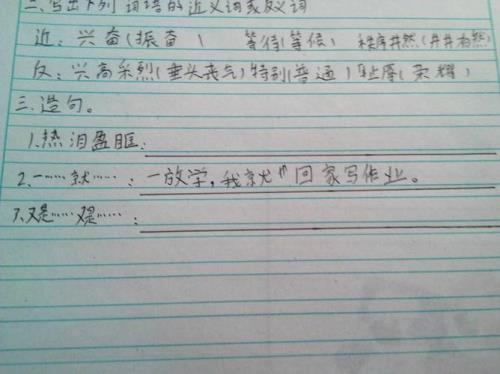 二、写出下列词语的近义词或反义词
近：兴奋(振奋) 等待(等候) 秩序井然(井井有然)
反：兴高采烈(垂头丧气)特别(普通)耻辱(荣耀)
三、造句。
1.热泪盈眶：
2.一……就……：一放学，我就回家写作业。
3.又是……又是……：